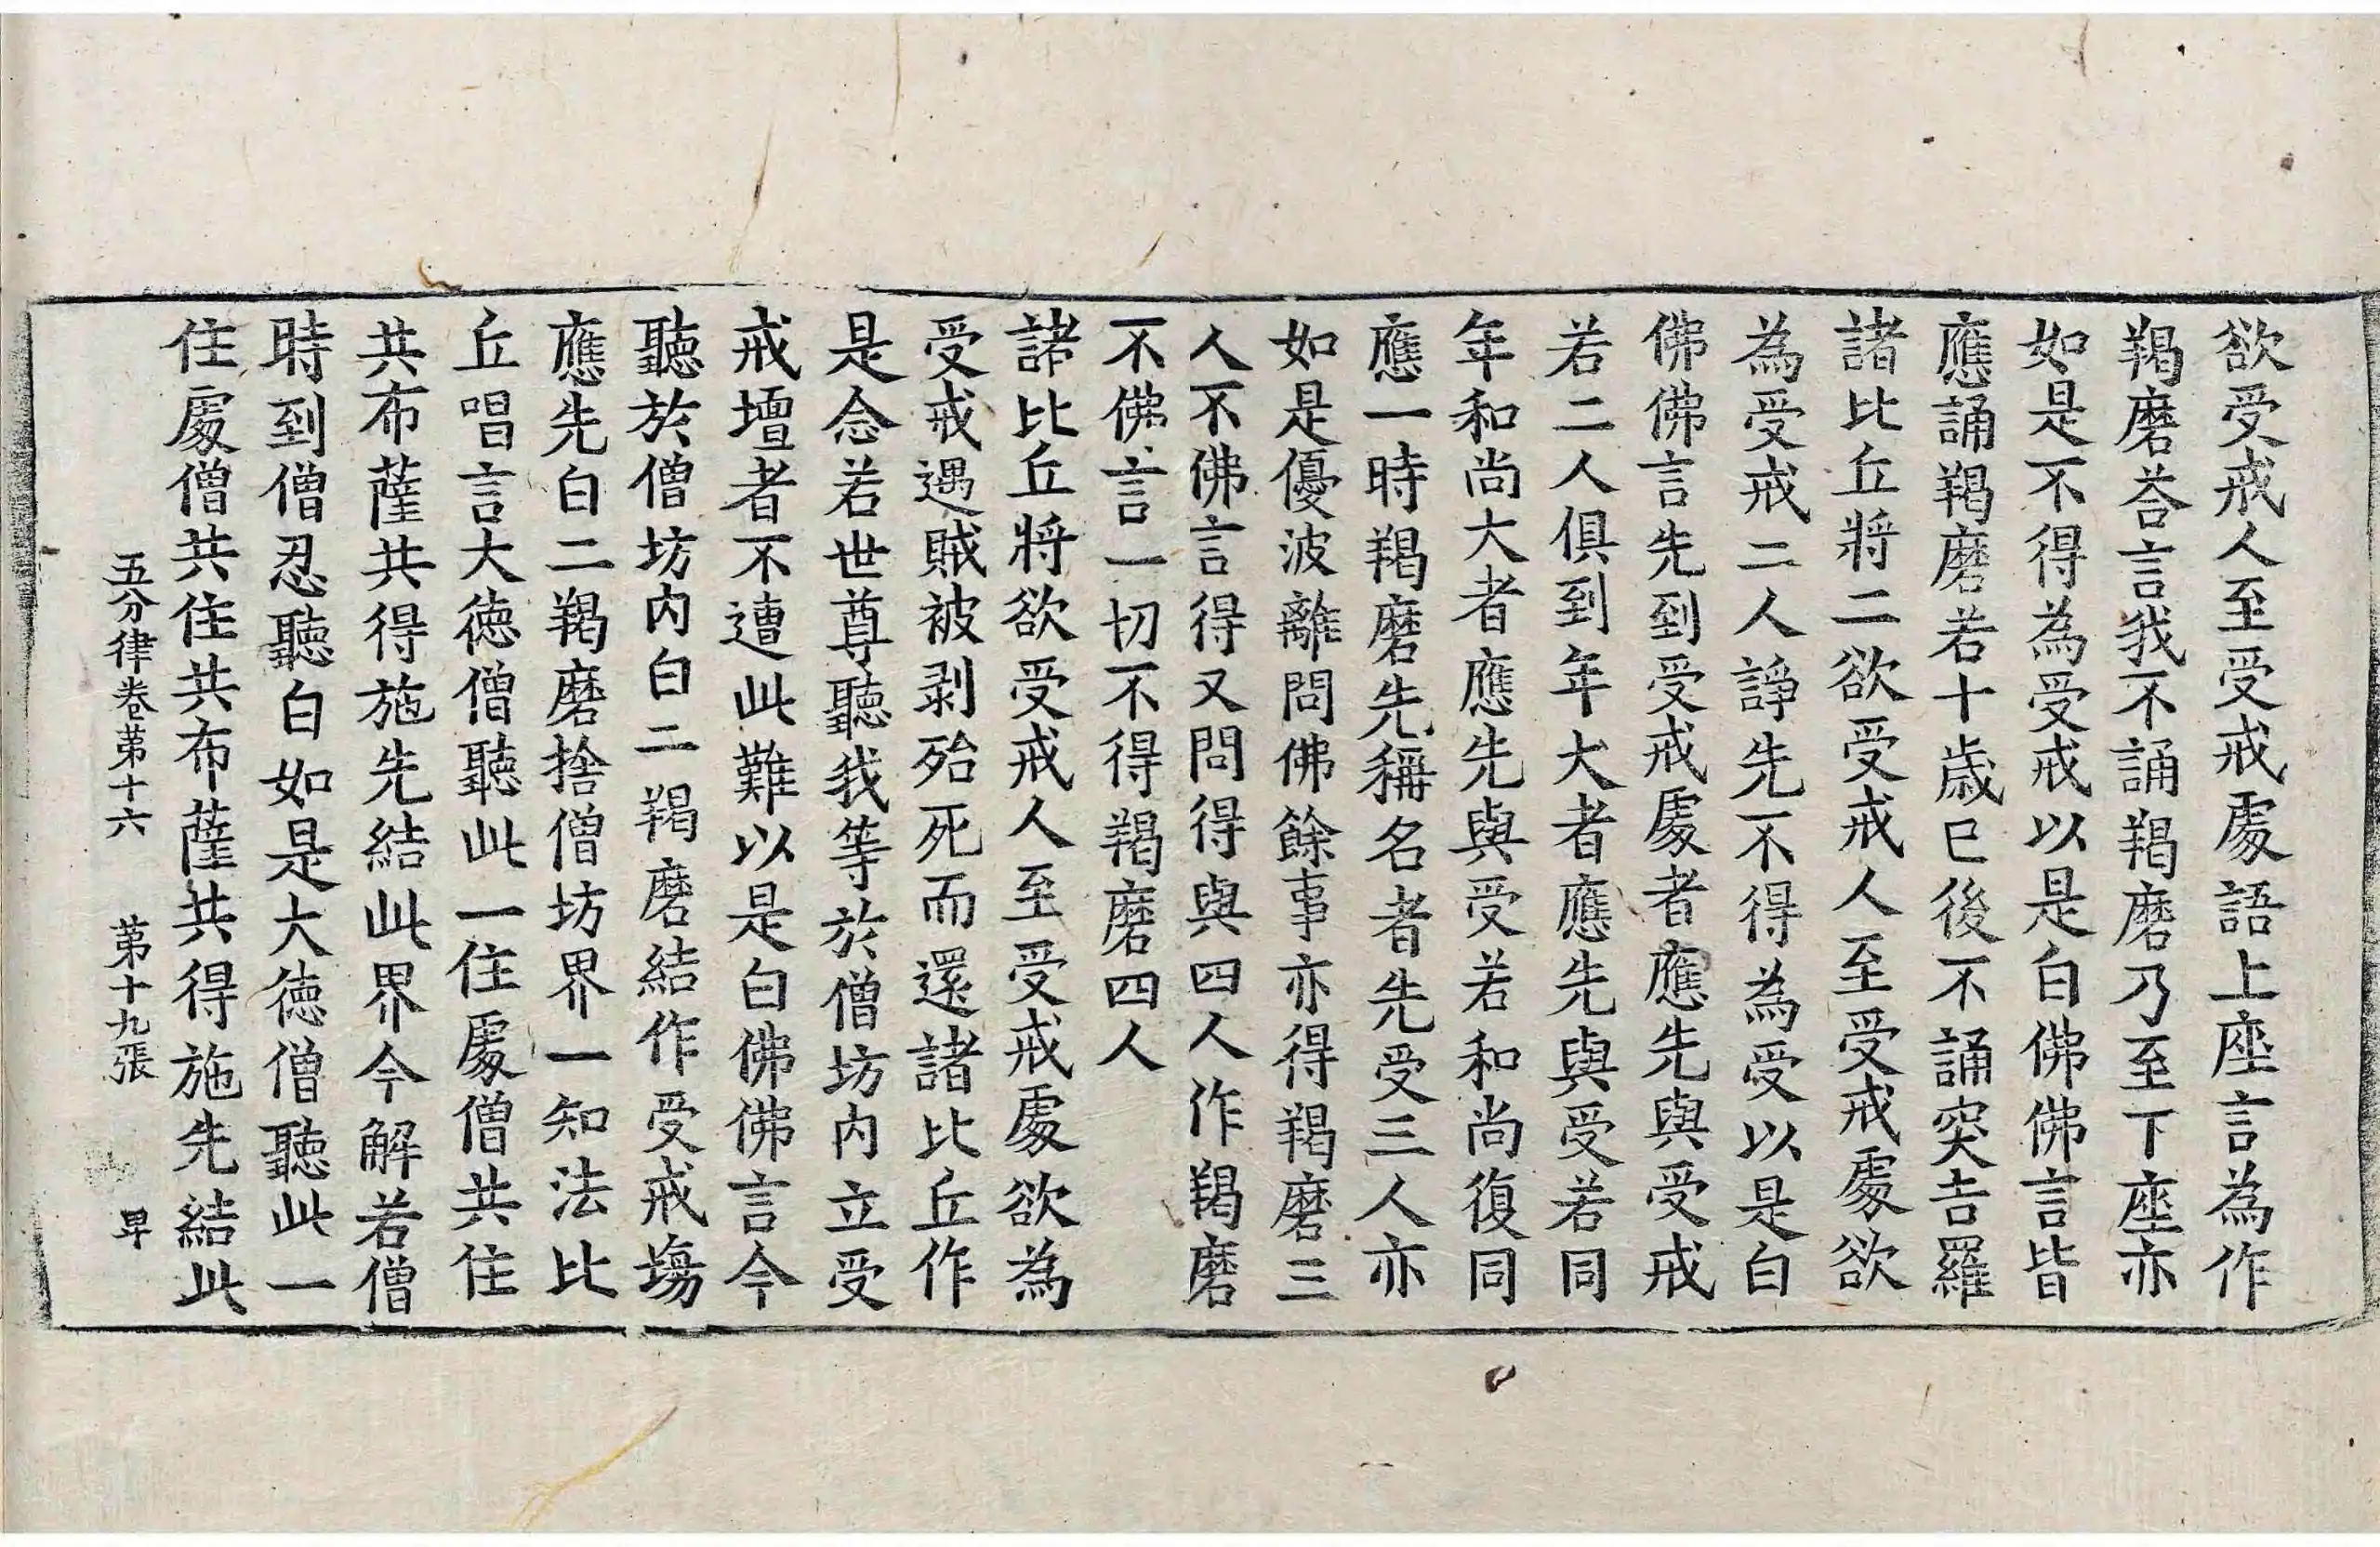 欲受戒人至受戒處語上座言為作
羯磨荅言我不誦羯磨乃至下座亦
如是不得為受戒以是白佛佛言皆
應誦羯磨若十歲已後不誦突吉羅
諸比丘將二欲受戒人至受戒處欲
為受戒二人諍先不得為受以是白
佛佛言先到受戒處者應先與受戒
若二人俱到年大者應先與受若同
年和尚大者應先與受若和尚復同
應一時羯磨先稱名者先受三人亦
如是優波離問佛餘事亦得羯磨三
人不佛言得又問得與四人作羯磨
不佛言一切不得羯磨四人
諸比丘將欲受戒人至受戒處欲為
受戒遇賊被剥殆死而還諸比丘作
是念若世尊聽我等於僧坊內立受
戒壇者不遭此難以是白佛佛言今
聽於僧坊內白二羯磨結作受戒塲
應先白二羯磨捨僧坊界一知法比
丘唱言大德僧聽此一住處僧共住
共布薩共得施先結此界今解若僧
時到僧忍聽白如是大德僧聽此一
住處僧共住共布薩共得施先結此
五分律卷第十六 第十九張 㫖